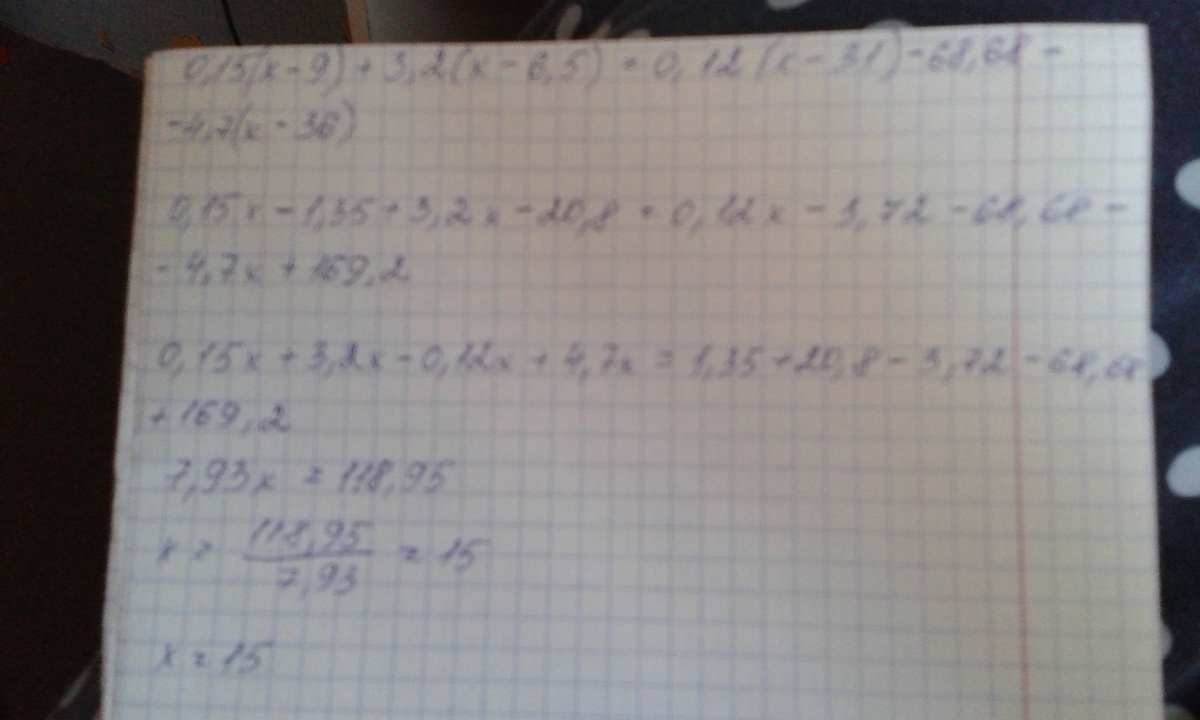 0,15(x-9)+3,2(x-6,5)=0,12(x-31)-68,68-
-4,7(x-36)
0,15x-1,35+3,2x-20,8=0,12x-3,72-68,68-
-4,7x+169,2
0,15x+3,2x-0,12x+4,7x=1,35+20,8-3,72-68,68
+169,2
7,93x=118,95
x=118,95/7,93=15
x=15